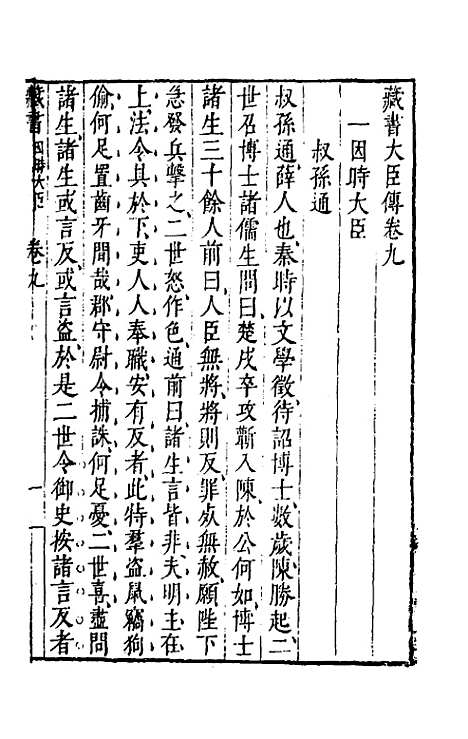 藏書大臣傳卷九
一因時大臣
叔孫通
叔孫通薛人也秦時以文學徵待詔博士數歲陳勝起二
世召博士諸儒生問曰楚戍卒攻蘄入陳於公何如博士
諸生三十餘人前曰人臣無將將則反罪死無赦願陛下
急發兵擊之二世怒作色通前曰諸生言皆非夫明主在
上法令具於下吏人人奉職安有反者此特羣盗鼠竊狗
偷何足置齒牙間哉郡守尉令捕誅何足憂二世喜盡問
諸生諸生或言反或言盗於是二世令御史按諸言反者
藏書 因時大臣 卷九 一